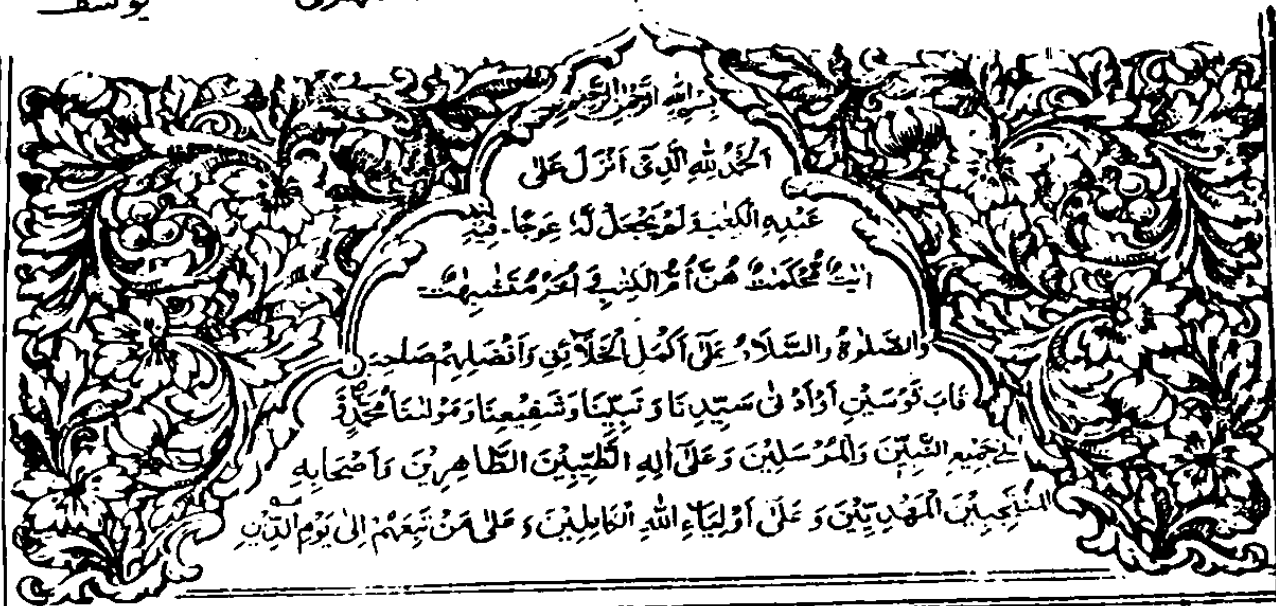 يوسف
بِسْمِ اللهِ الرَّحْمٰنِ الرَّحِيْمِ
اَلْحَمْدُ لِلّٰهِ الَّذِىْٓ اَنْزَلَ عَلٰى
عَبْدِهِ الْكِتٰبَ وَلَمْ يَجْعَلْ لَّهٗ عِوَجًا۔ فِيْهِ
اٰيٰتٌ مُّحْكَمٰتٌ هُنَّ اُمُّ الْكِتٰبِ وَ اُخَرُ مُتَشٰبِهٰتٌ
وَالصَّلٰوةُ وَالسَّلَامُ عَلٰٓى اَكْمَلِ الْخَلَآئِقِ وَاَفْضَلِهِمْ صَاحِبِ
قَابَ قَوْسَيْنِ اَوْ اَدْنٰى سَيِّدِنَا وَ نَبِيِّنَا وَشَفِيْعِنَا وَمَوْلٰنَا مُحَمَّدٍ وَّ
عَلٰى جَمِيْعِ النَّبِيّٖنَ وَالْمُرْسَلِيْنَ وَعَلٰٓى اٰلِهِ الطَّيِّبِيْنَ الطَّاهِرِيْنَ وَاَصْحَابِهِ
الْمُفْلِحِيْنَ الْمَهْدِيِّيْنَ وَ عَلٰٓى اَوْلِيَآءِ اللهِ الْكَامِلِيْنَ وَ عَلٰى مَنْ تَبِعَهُمْ اِلٰى يَوْمِ الدِّيْنِ